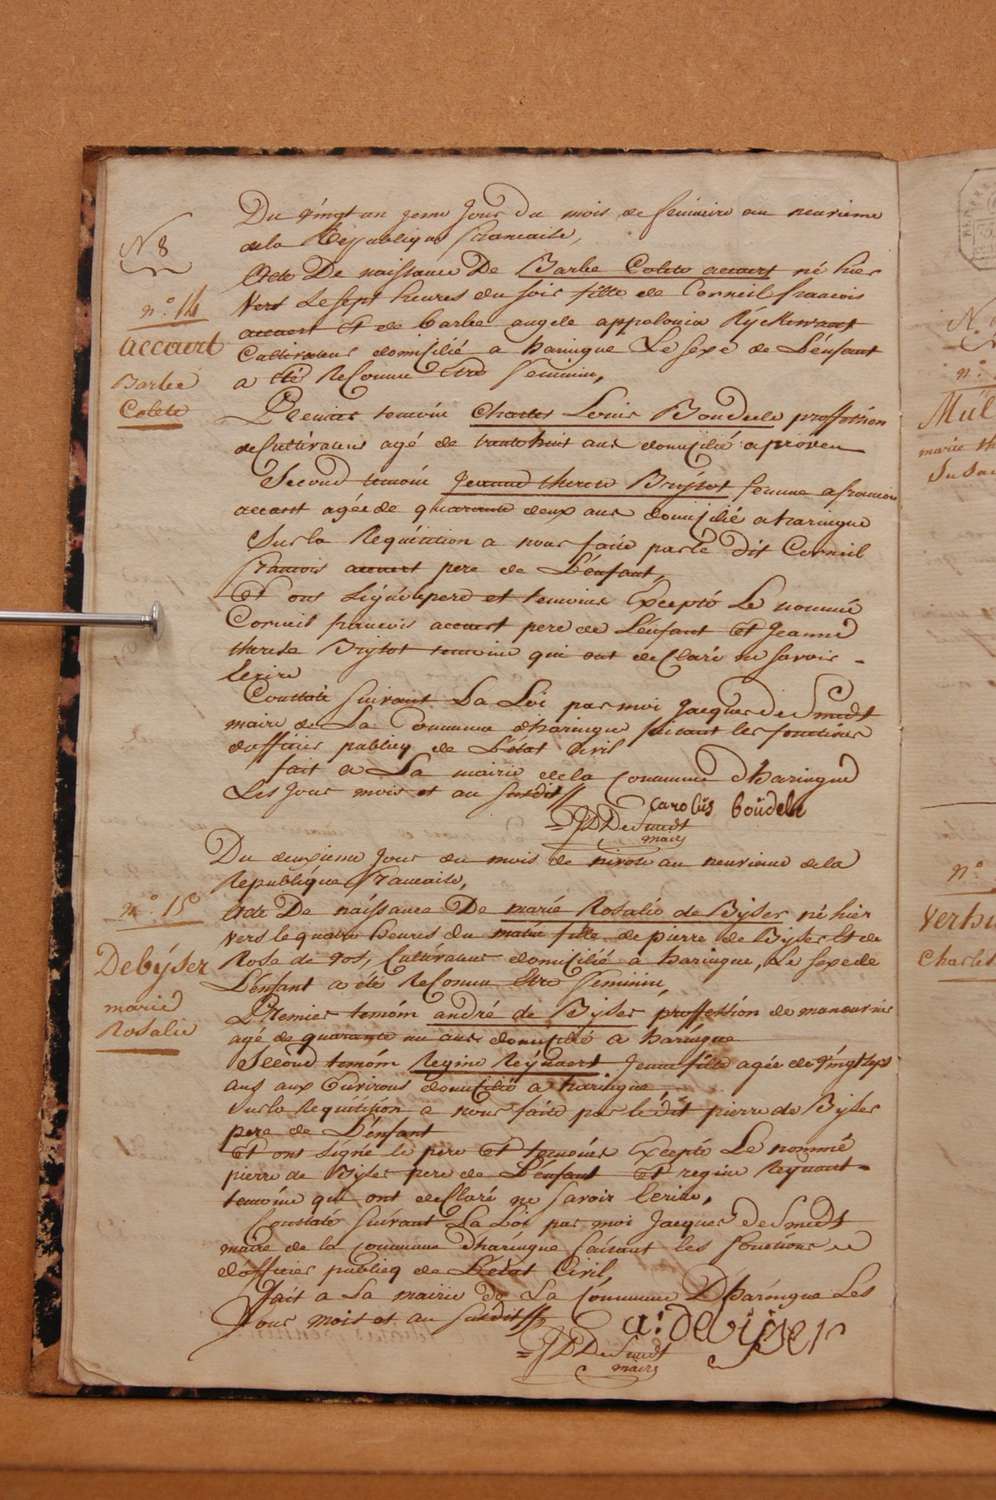 N 8
Du vingt un jeme Jour Du mois de frimaire an neuvieme
de la Republique francaise,
n.° 14
accaert
Barbe
Colete
Acte De naissance De Barbe Colete accaert né hier
vers Le sept heures du soir fille de Corneil francois
accaert Et de barbe angele appolonia Ryckewaert
Cultivateur domicilié a haringue Le sexe de L'énfant
a été ReConnu Etre feminin,
Premier temoin Charles Louis Boudele proffession
de Cultivateur agé de trentehuit ans domicilié a próven
Second temoin Jeanne therese Brijtot femme a francois
accaert agée de quarante deux ans domicilié a haringue
Sur la Requisition a nous faite par le dit Corneil
francois accaert pere de L'énfant,
Et ont signé le pere et temoins Excepté Le nommé
Corneil francois accaert pere de L'énfant Et Jeanne
therese Brijtot temoine qui ont deClaré ne savoir
lecrire
Constaté suivant La Loi par moi Jacques De Smedt
maire de La Commune dharingue faisant les fonctions
dofficier publicq de L'état Civil
fait a La mairie de la Commune Dharingue
Les Jour mois et an susdit
carolus boudele
J D De Smedt
maire
n.° 15
Debÿser
marie
Rosalie
Du deuxieme Jour du mois de nivose an neuvieme de la
Republique francaise,
Acte De naissance De marie Rosalie de Bÿser né hier
vers le quatre heures du matin fille de pierre de Bÿser Et de
Rose de vos, Cultivateur domicilié a haringue, Le sexe de
L'énfant a été ReConnu Etre feminin,
Premier temoin andré de Bÿser proffession de manouvrier
agé de quarante un ans domicilié a haringue
Second temoin Regine Reÿnaert Jeune fille agée de vingt sept
ans aux Environs domicilié a haringue
sur la Requisition a nous faite par le dit pierre de Bÿser
pere de L'énfant
Et ont signé le pere Et temoins Excepté Le nommé
pierre de Bÿser pere de L'énfant Et regine Reÿnaert
temoine qui ont deClaré ne savoir lecrire,
Constaté suivant La Loi par moi Jacques De Smedt
maire de la Commune Dharingue faisant les fonctions
dofficier publicq de L'état Civil
fait a La mairie de La Commune Dharingue Les
Jour mois et an susdit
a: de Bijser
J D De Smedt
maire
n.°
Mul
marie th
n.°
verhu
Charles